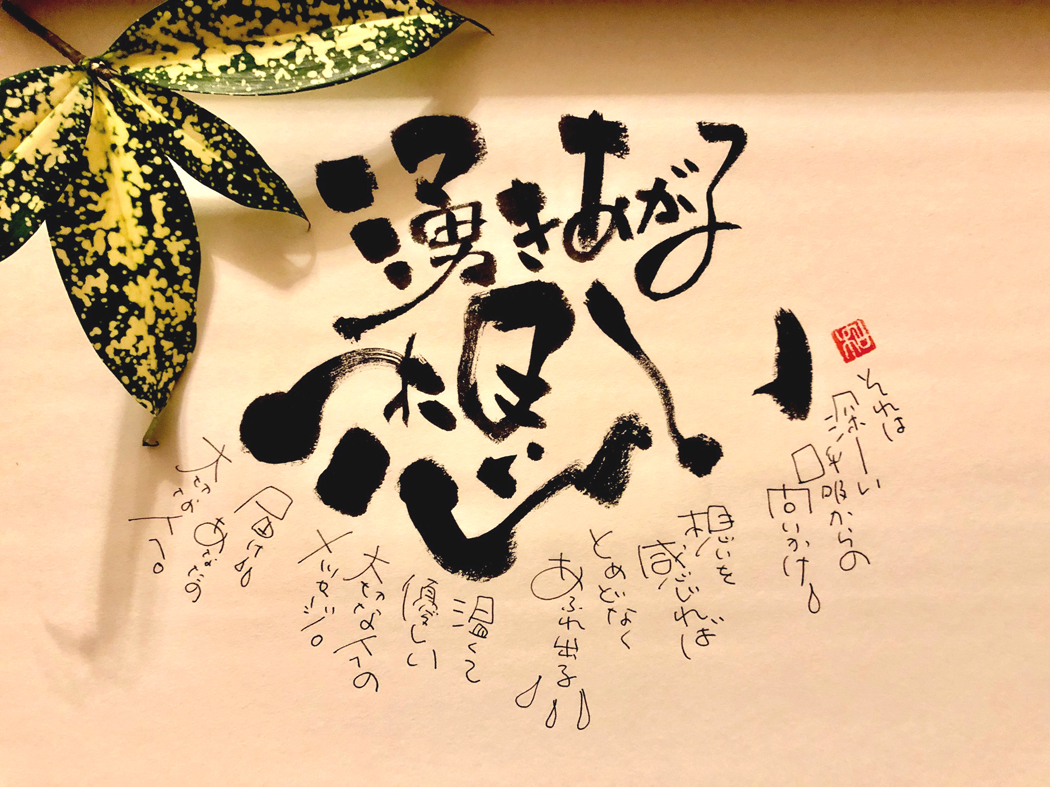 湧きあがる
想い
それは
深ーい
呼吸からの
問いかけ
想いを
感じれば
とめどなく
あふれ出る
温くて
優しい
大切な人の
メッセージ。
届ける
大切なあなたの
人へ。